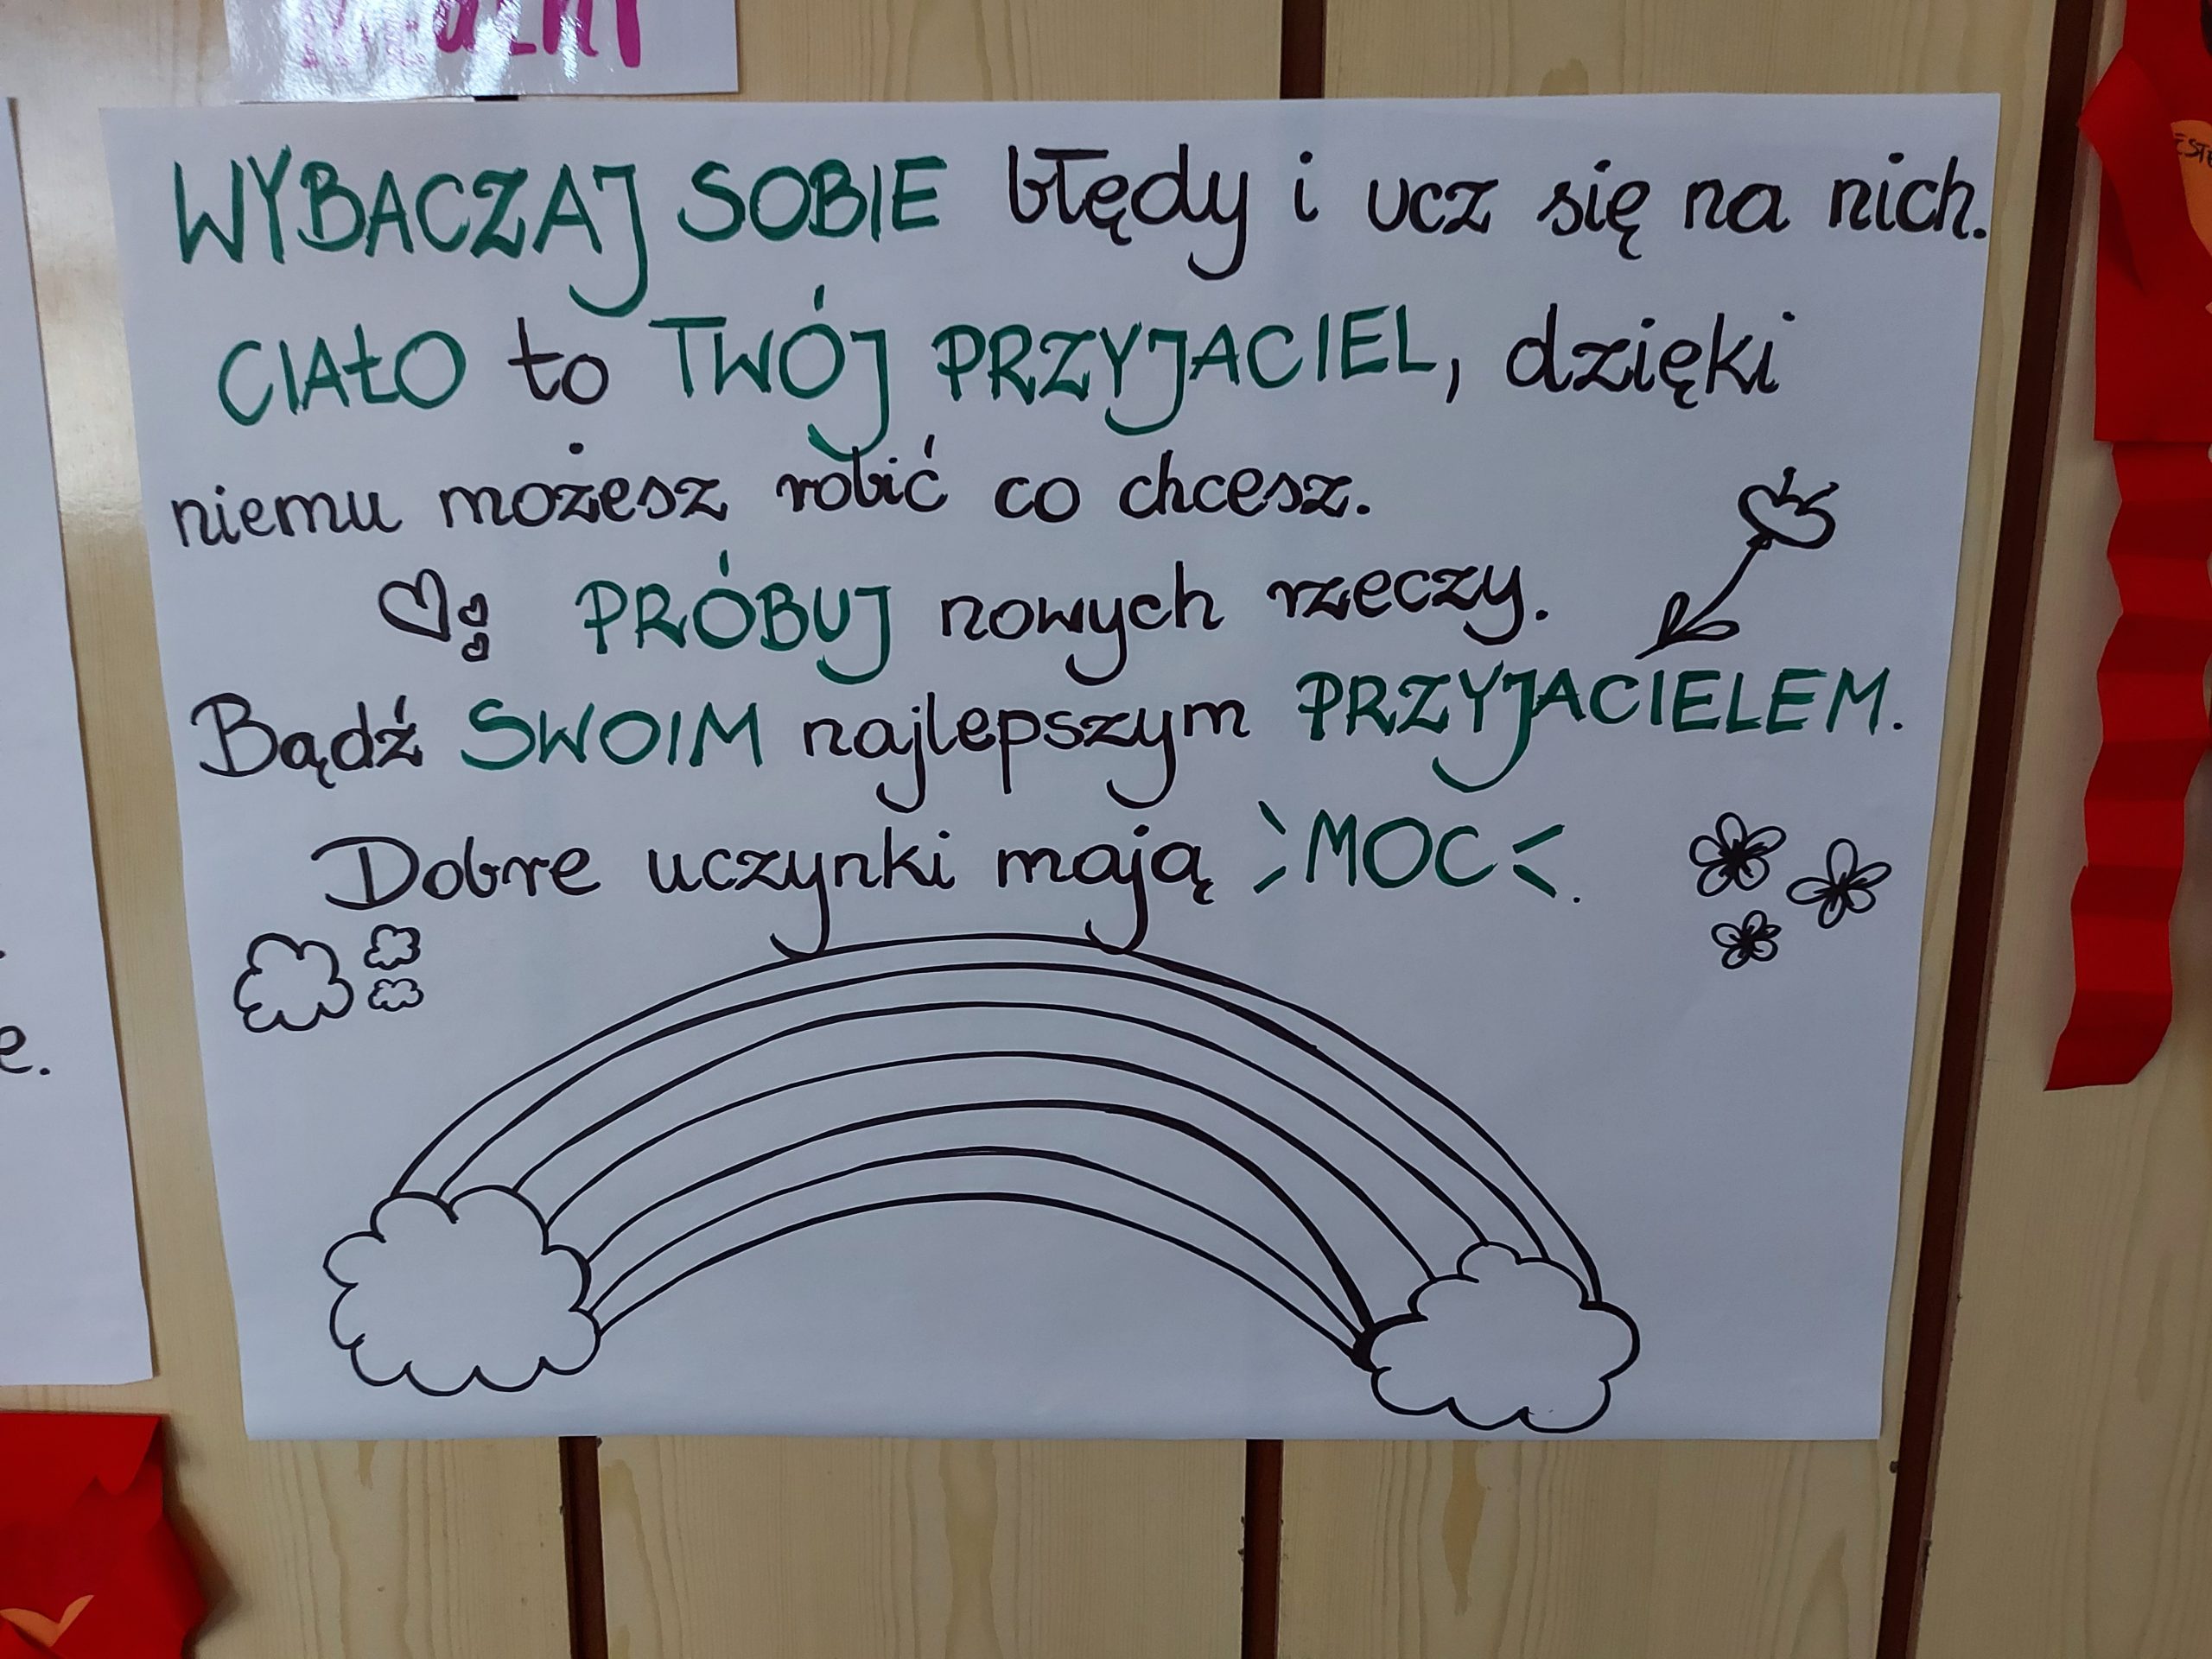 WYBACZAJ SOBIE błędy i ucz się na nich.
CIAŁO to TWÓJ PRZYJACIEL, dzięki
niemu możesz robić co chcesz.
PRÓBUJ nowych rzeczy.
Bądź SWOIM najlepszym PRZYJACIELEM.
Dobre uczynki mają MOC.
e.